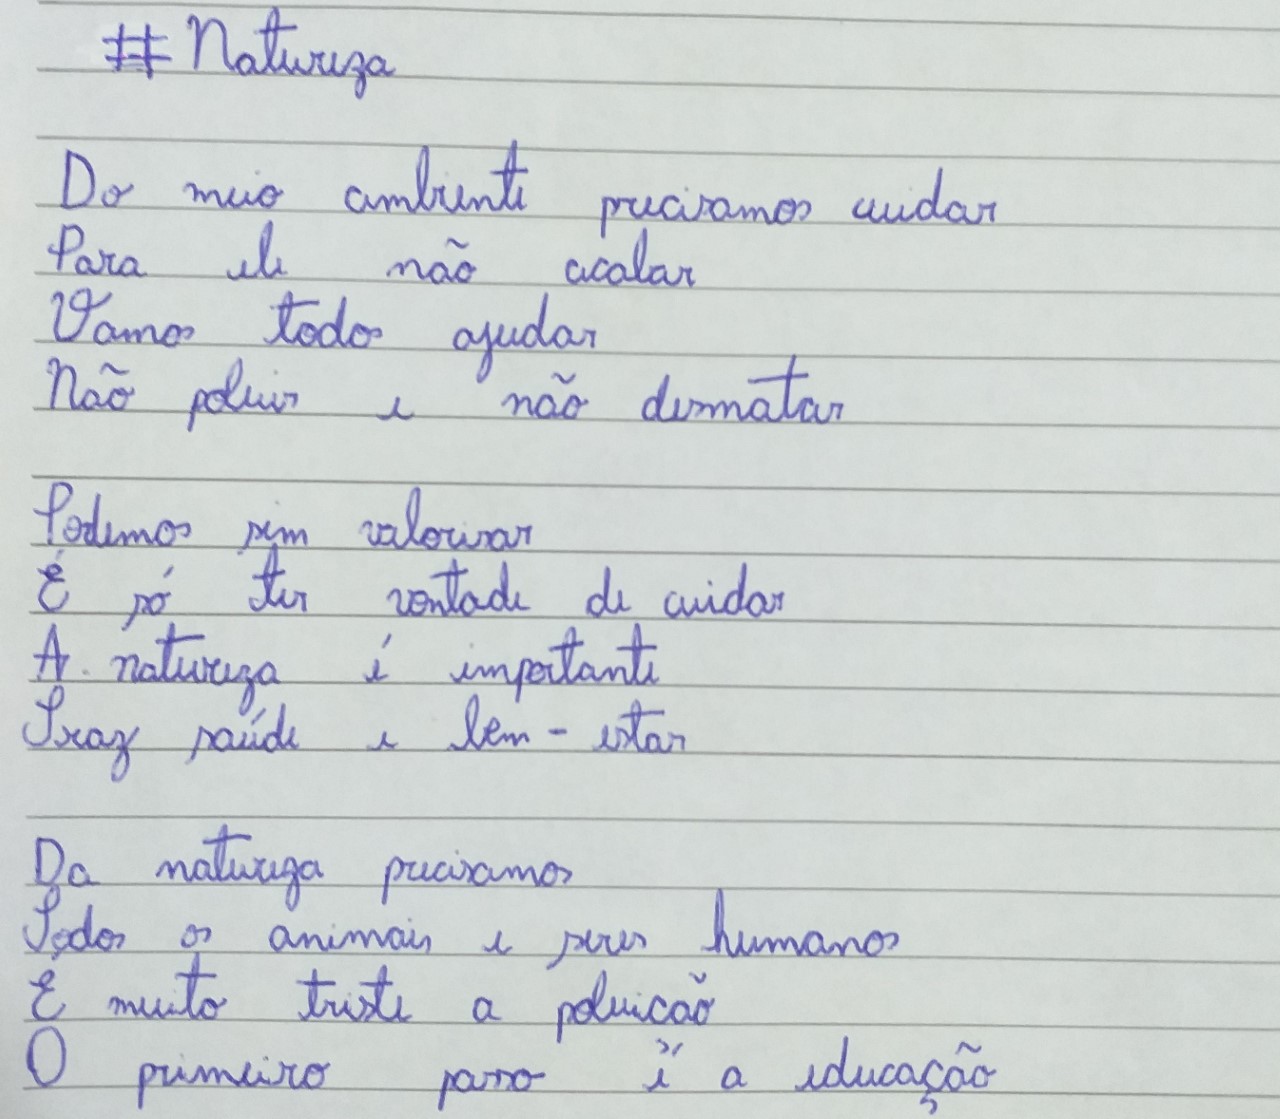 # Natureza
Do meio ambiente precisamos cuidar
Para ele não acabar
Vamos todos ajudar
Não poluir e não desmatar
Podemos sim valorisar
É só ter vontade de cuidar
A natureza é importante
Traz saúde e bem-estar
Da natureza precisamos
Todos os animais e seres humanos
E muito triste a poluicão
O primeiro passo é a educação